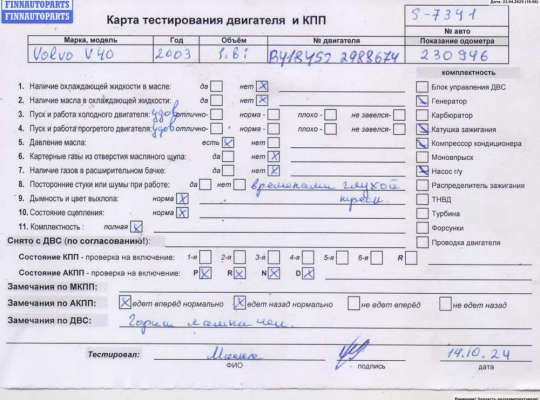 FINNAUTOPARTS
FINNAUTOPARTS
Карта тестирования двигателя и КПП
S-7341
№ авто
Марка, модель Год Объём № двигателя Показание одометра
Volvo V40 2003 1.8i B4184S2 2988674 230946
комплектность
1. Наличие охлаждающей жидкости в масле: да нет
2. Наличие масла в охлаждающей жидкости: да нет
3. Пуск и работа холодного двигателя: удов отлично- норма - плохо - не завелся-
4. Пуск и работа прогретого двигателя: удов отлично- норма - плохо - не завелся-
5. Давление масла: есть нет
6. Картерные газы из отверстия масляного щупа: да нет
7. Наличие газов в расширительном бачке: да нет
8. Посторонние стуки или шумы при работе: да нет временами глухой
9. Дымность и цвет выхлопа: норма
10. Состояние сцепления: норма
11. Комплектность: полная
Блок управления ДВС
Генератор
Карбюратор
Катушка зажигания
Компрессор кондиционера
Моновпрыск
Насос г/у
Распределитель зажигания
ТНВД
Турбина
Форсунки
Проводка двигателя
Снято с ДВС (по согласованию!):
Состояние КПП - проверка на включение: 1-я 2-я 3-я 4-я 5-я 6-я R
Состояние АКПП - проверка на включение: P R N D
Замечания по МКПП:
Замечания по АКПП: едет вперёд нормально едет назад нормально не едет вперёд не едет назад
Замечания по ДВС: Горит лампа чек.
Тестировал: 14.10.24
ФИО подпись дата